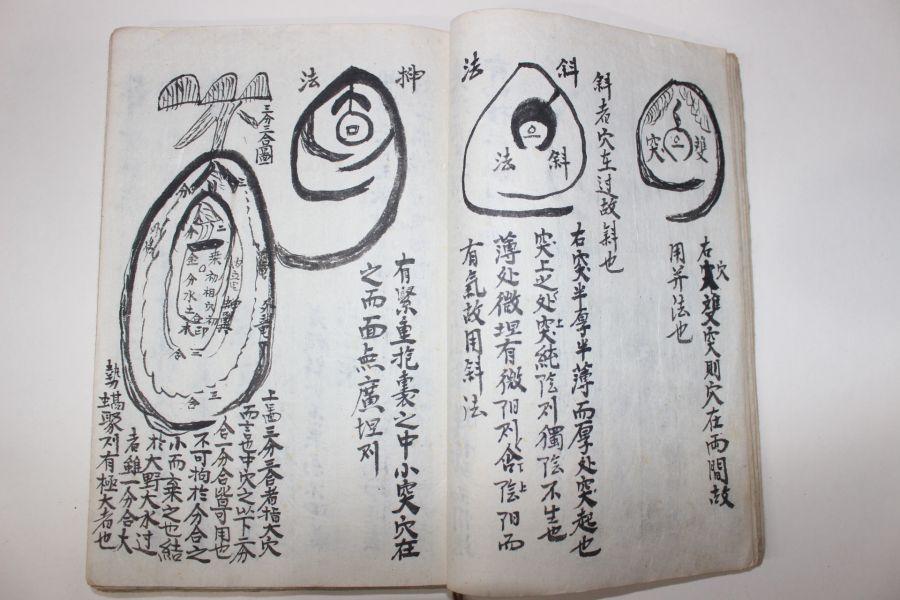 雙
突
右雙突則穴在両間故
穴
用并法也
斜者穴在过故斜也
斜法
斜法
右突半厚半薄而厚处突起也
突上之处突純陰则獨陰不生也
上
薄处微坦有微阳则含陰阳而
上
有氣故用斜法
抻法
有緊重抱裹之中小突穴在
之而面無廣坦则
三分三合圖
上啚三分三合者指大穴
而言也中穴之以下二分
合一分合皆可用也
不可拘於分合之
小而棄之也結
於大野大水过
者雖一分合大
勢蝺聚则有極大者也